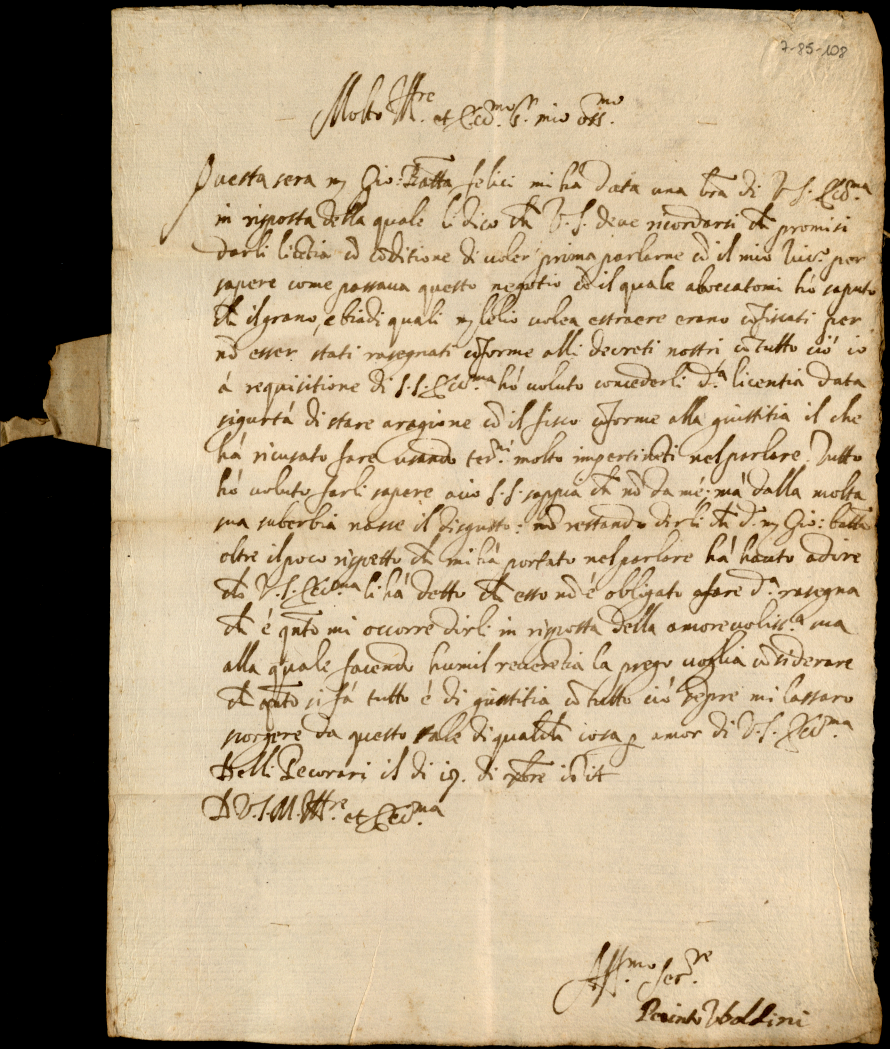 7-85-108
Molto Ill.re et Ecc.mo S.r mio oss.mo
Questa sera m Gio: Batta felici mi há data una lra di V.S. Ecc.ma
in risposta della quale li dico ch V.S. deve ricordarsi ch promisi
darli licētia cō cōditione di voler prima parlarne cō il mio per
sapere come passava questo negotio cō il quale aboccatomi hó saputo
ch il grano, e biadi quali m lelio volea estraere erano cōfiscati per
nō esser stati rasegnati cōforme alli decreti nostri cō tutto ció io
á requisitione di S.S. Ecc.ma hó voluto concederli d.a licentia data
sigurtá di stare aragione cō il fisco cōforme alla giustitia il che
há ricusato fare usando ter.ni molto impertinēti nel parlare. Tutto
hó voluto farli sapere acio S.S. sappia ch nō da mé, má dalla molta
sua suberbia nasse il disgusto: nō restando dirli ch d. m Gio: batta
oltre il poco rispetto ch mi há portato nel parlare há hauto a dire
ch V.S. Ecc.ma li há detto ch esso nō é obligato afare d.a rasegna
ch é qnto mi occorre dirli in risposta della amorevoliss.a sua
alla quale facendo humil reverētia la prego voglia cōsiderare
ch qnto si fá tutto é di giustitia cō tutto ció sēpre mi lassaro
porgere da questo tale di qualch cosa p amor di V.S. Ecc.ma
Delli Pecorari il di 19. di xbre
D V.S. M. Ill.re et Ecc.ma
Aff.mo Ser.re
Uboldini